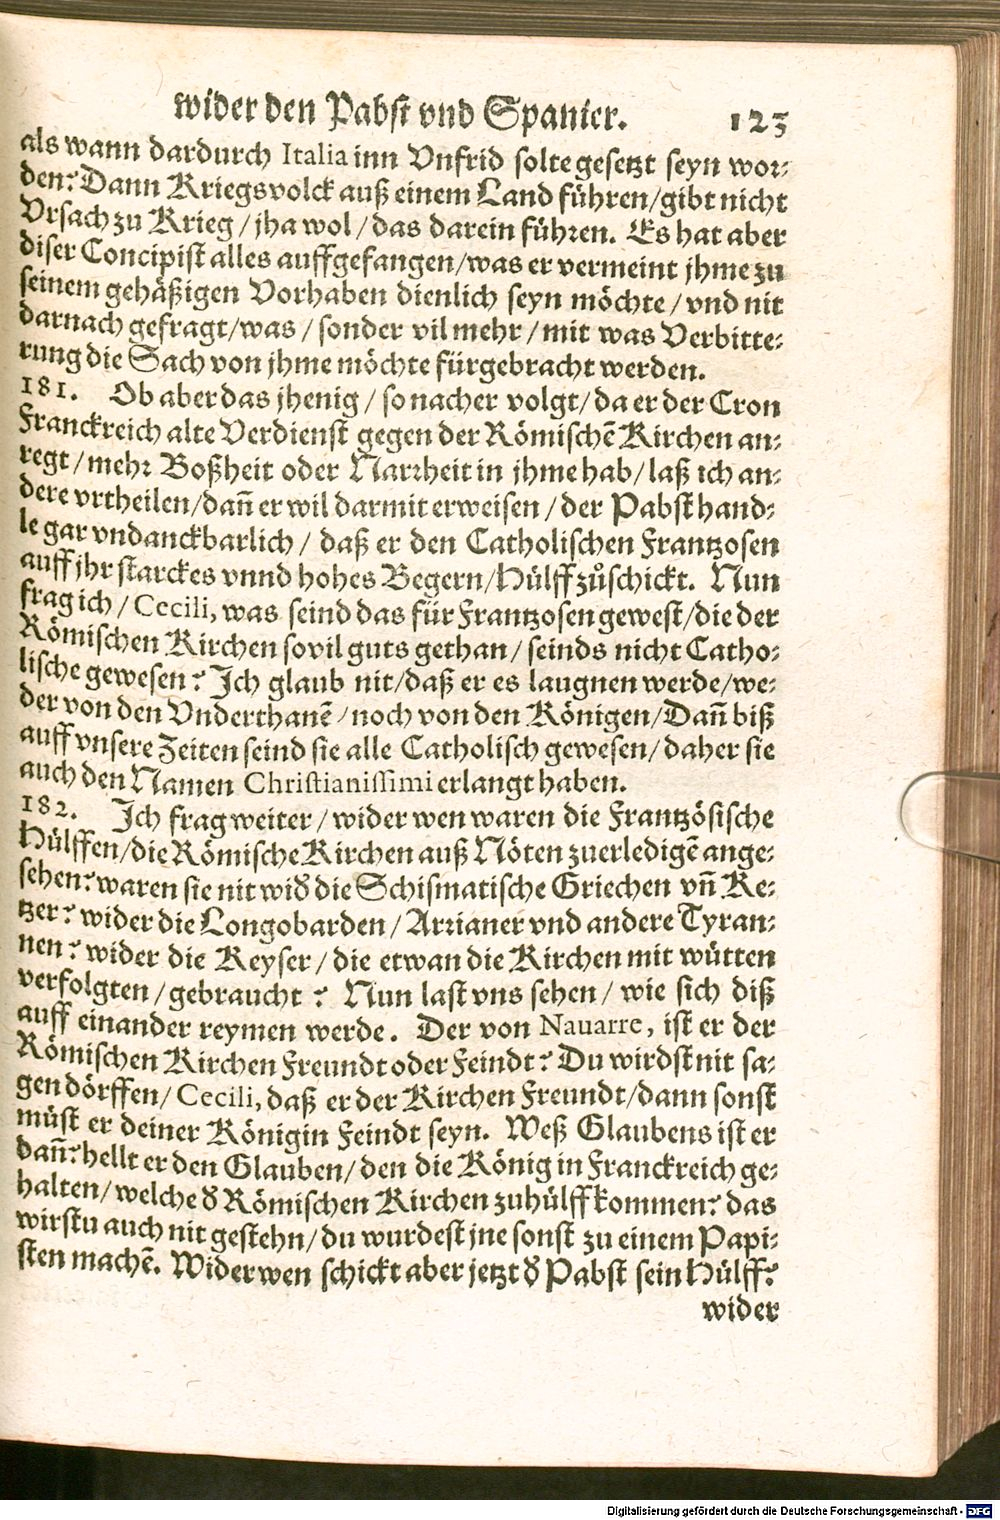 wider den Pabst vnd Spanier. 123
als wann dardurch Italia inn Vnfrid solte gesetzt seyn wor⸗
den? Dann Kriegsvolck auß einem Land führen/gibt nicht
Vrsach zu Krieg/ jha wol/ das darein führen. Es hat aber
diser Concipist alles auffgefangen/was er vermeint jhme zu
seinem gehäßigen Vorhaben dienlich seyn möchte/ vnd nit
darnach gefragt/was/ sonder vil mehr/ mit was Verbitte⸗
rung die Sach von jhme möchte fürgebracht werden.
181. Ob aber das jhenig/ so nacher volgt/ da er der Cron
Franckreich alte Verdienst gegen der Römischẽ Kirchen an⸗
regt/ mehr Boßheit oder Narrheit in jhme hab/ laß ich an⸗
dere vrtheilen/dañ er wil darmit erweisen/ der Pabst hand⸗
le gar vndanckbarlich/ daß er den Catholischen Frantzosen
auff jhr starckes vnnd hohes Begern/Hülff zůschickt. Nun
frag ich/ Cecili, was seind das für Frantzosen gewest/die der
Römischen Kirchen sovil guts gethan/ seinds nicht Catho⸗
lische gewesen? Ich glaub nit/daß er es laugnen werde/we⸗
der von den Vnderthanẽ/noch von den Königen/Dañ biß
auff vnsere Zeiten seind sie alle Catholisch gewesen/ daher sie
auch den Namen Christianissimi erlangt haben.
182. Ich frag weiter/ wider wen waren die Frantzösische
Hülffen/die Römische Kirchen auß Nöten zuerledigẽ ange⸗
sehen? waren sie nit widð die Schismatische Griechen vñ Ke⸗
tzer? wider die Longobarden/ Arrianer vnd andere Tyran⸗
nen? wider die Keyser/ die etwan die Kirchen mit wütten
verfolgten/ gebraucht? Nun last vns sehen/ wie sich diß
auff einander reymen werde. Der von Nauarre, ist er der
Römischen Kirchen Freundt oder Feindt? Du wirdst nit sa⸗
gen dörffen/ Cecili, daß er der Kirchen Freundt/dann sonst
müst er deiner Königin Feindt seyn. Weß Glaubens ist er
dañ? hellt er den Glauben/ den die König in Franckreich ge⸗
halten/ welche ð Römischen Kirchen zuhülff kommen? das
wirstu auch nit gestehn/ du wurdest jne sonst zu einem Papi⸗
sten machẽ. Wider wen schickt aber jetzt ð Pabst sein Hülff?
wider
Digitalisierung gefördert durch die Deutsche Forschungsgemeinschaft - DFG